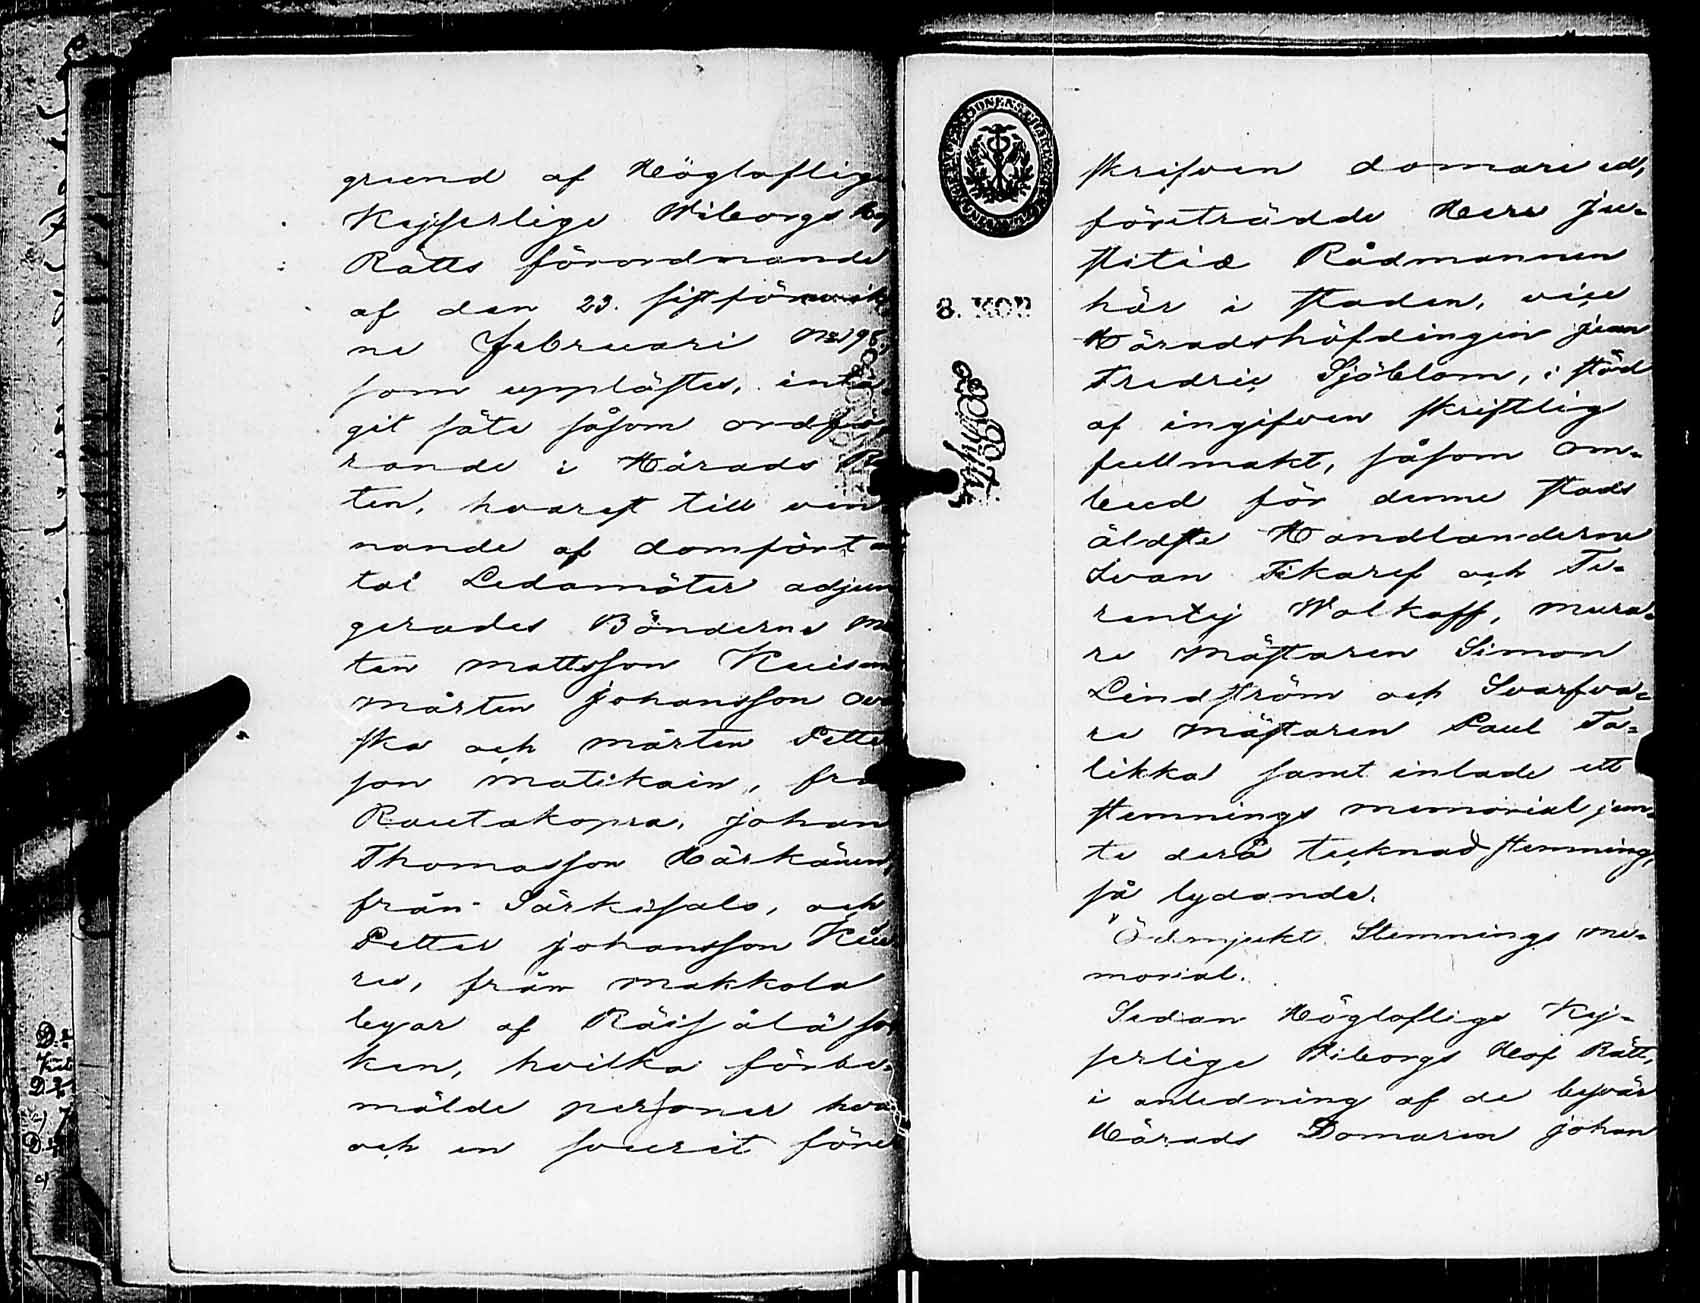 grund af Högloflige
Kejserlige Wiborgs
Rätts förordnande
af den 23. sistförvik
ne Februari No 98,
som upplästes, inta
git säte såsom ordfö
rande i Härads Rä
ten, hvarest till vin
nande af domfört an
tal Ledamöter adjun
gerades Bönderne
ten Mattsson Kuisma
Mårten Johansson
ska och Mårten Petter
son Matikain, från
Rautakopra, Johan
Thomasson Härkänen,
från Särkisalo, och
Petter Johansson
re, från Makkola
byar af Räisälä soc
ken, hvilka förbe-
mälde personer hvar
och en svurit före
skrifven domare ed,
företrädde Herr Ju-
stitiæ Rådmannen
här i staden, vice
Häradshöfdingen
Fredric Sjöblom, i stöd
af ingifven skriftlig
fullmakt, såsom om-
bud för denne stads
äldste Handlanderne
Ivan Fikaref och Te-
rentej Wolkoff, Mura-
re Mästaren Simon
Lindström och Svarfva-
re Mästaren Paul Ta-
likka samt inlade ett
stemnings memorial jem-
te derå tecknad stemning,
så lydande.
"Ödmjukt Stemnings Me-
morial.
Sedan Högloflige Kej-
serlige Wiborgs Hof Rätt,
i anledning af de besvär
Härads Domaren Johan
8. KOP